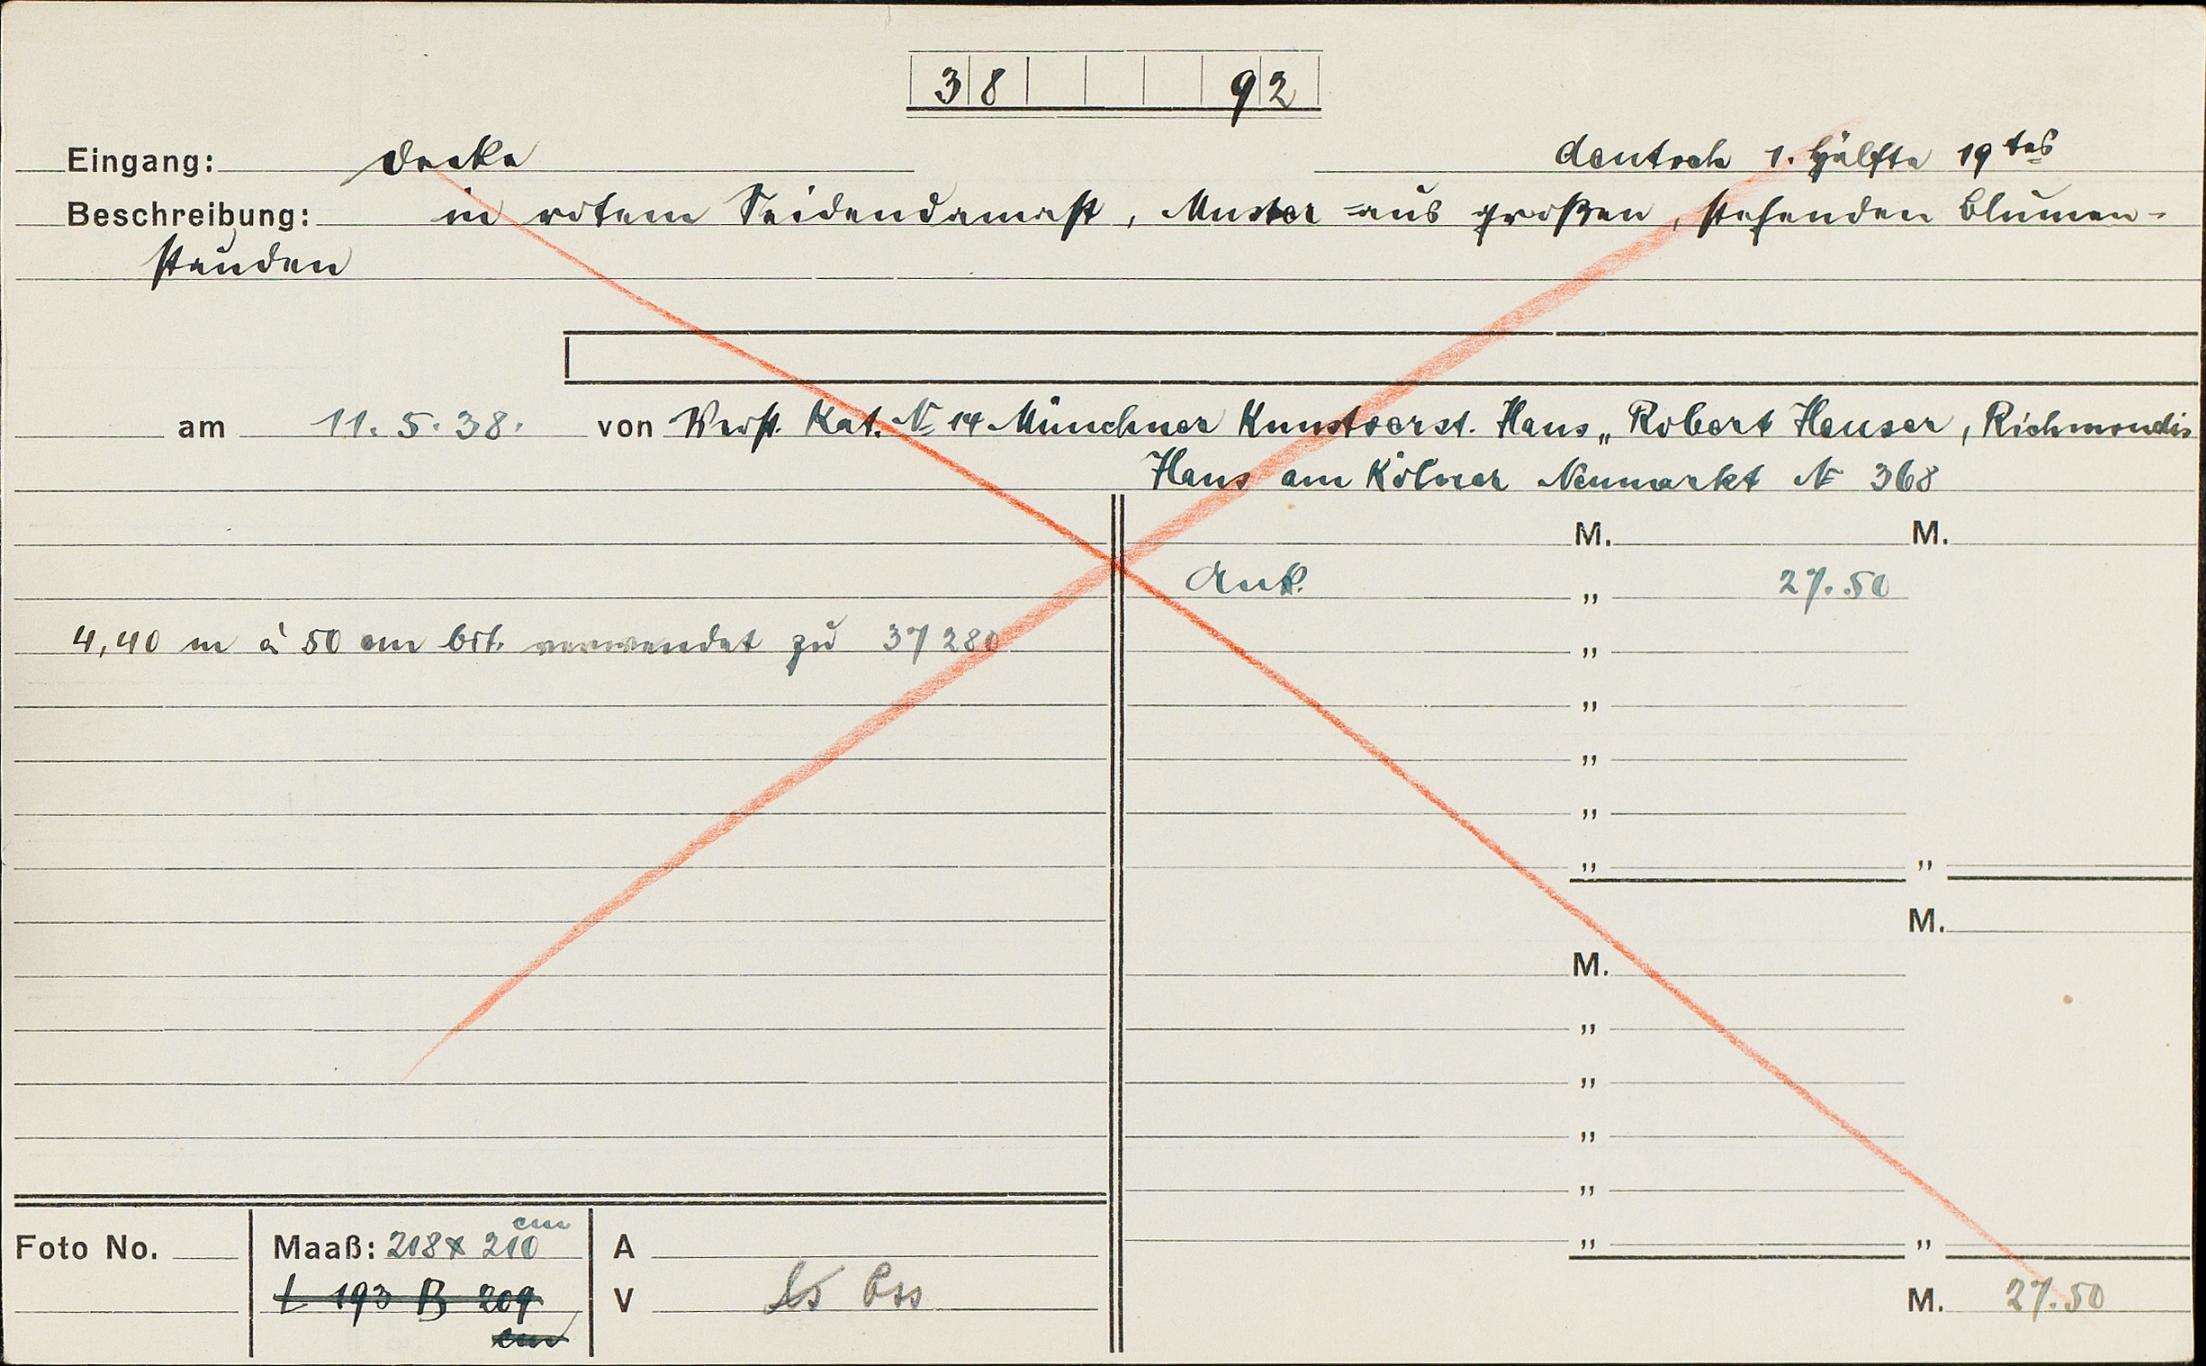 38 92
Eingang: Decke deutsch 1. Hälfte 19tes
Beschreibung: in rotem Seidendamast, Muster aus großen, stehenden Blumen-
stauden
am 11.5.38. von Verst. Kat. N 14 Münchner Kunstverst. Haus „ Robert Heuser, Richmondis
Haus am Kölner Neumarkt N 368
M. M.
Ank. „ 27.50
4,40 m à 50 cm brt. verwendet zu 37280 „
„
„
„
„ „
M.
M.
„
„
„
„
„ „
Foto No. Maaß: 218 x 210 cm A
L 193 B 209 V
cm
M. 27.50